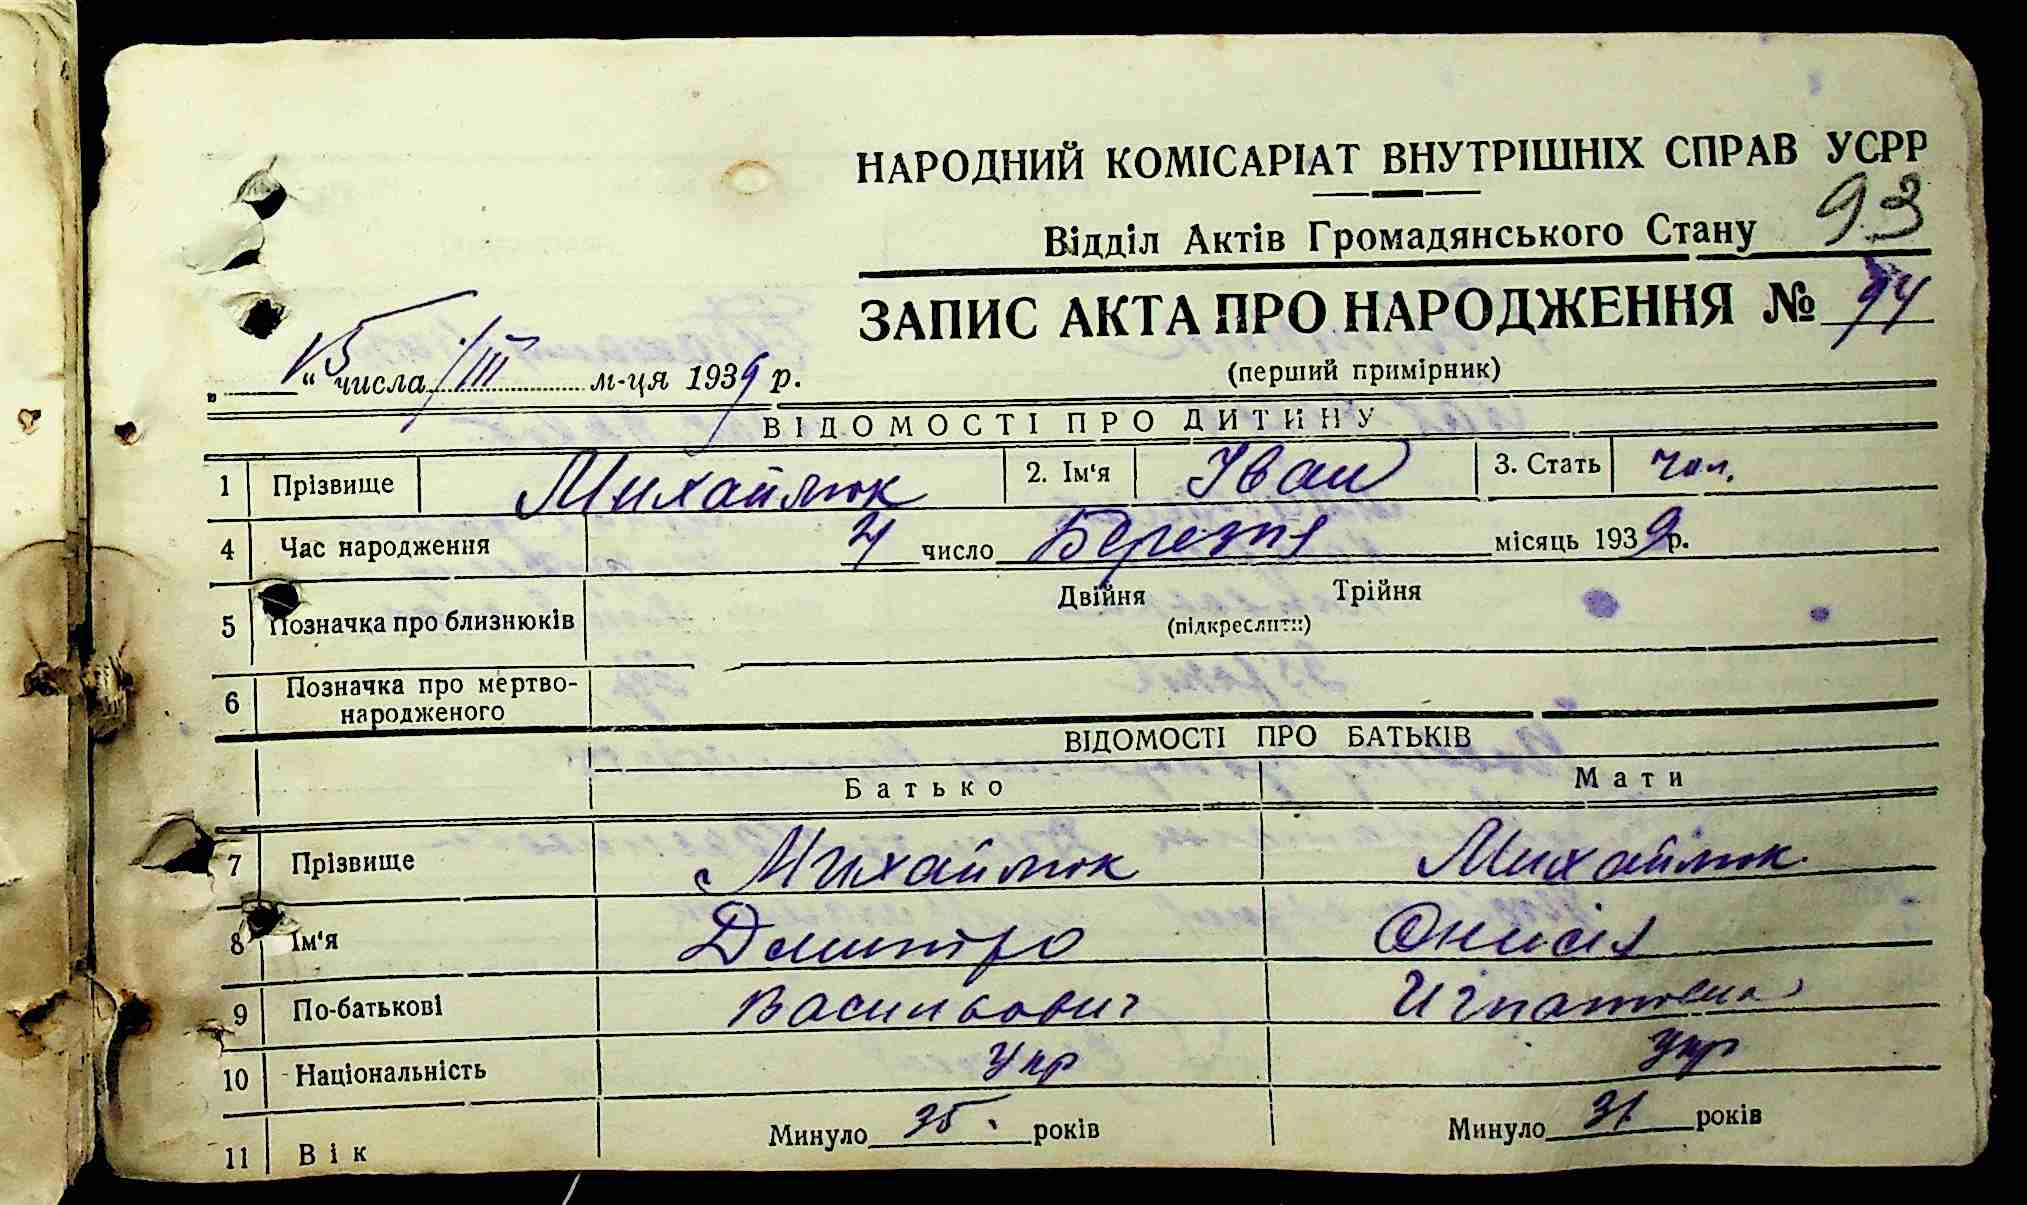 НАРОДНИЙ КОМІСАРІАТ ВНУТРІШНІХ СПРАВ УСРР
93
Відділ Актів Громадянського Стану
ЗАПИС АКТА ПРО НАРОДЖЕННЯ № 94
(перший примірник)
„ 15 “ числа /III м-ця 1939 р.
ВІДОМОСТІ ПРО ДИТИНУ
1 Прізвище Михайлюк 2. Ім'я Іван 3. Стать чол.
4 Час народження 4 число Березня місяць 1939 р.
5 Позначка про близнюків Двійня Трійня
(підкреслити)
6 Позначка про мертво-
народженого
ВІДОМОСТІ ПРО БАТЬКІВ
Батько Мати
7 Прізвище Михайлюк Михайлюк
8 Ім'я Дмитро Онисія
9 По-батькові Васильович Ігнатовна
10 Національність Укр Укр
11 Вік Минуло 35 років Минуло 31 років